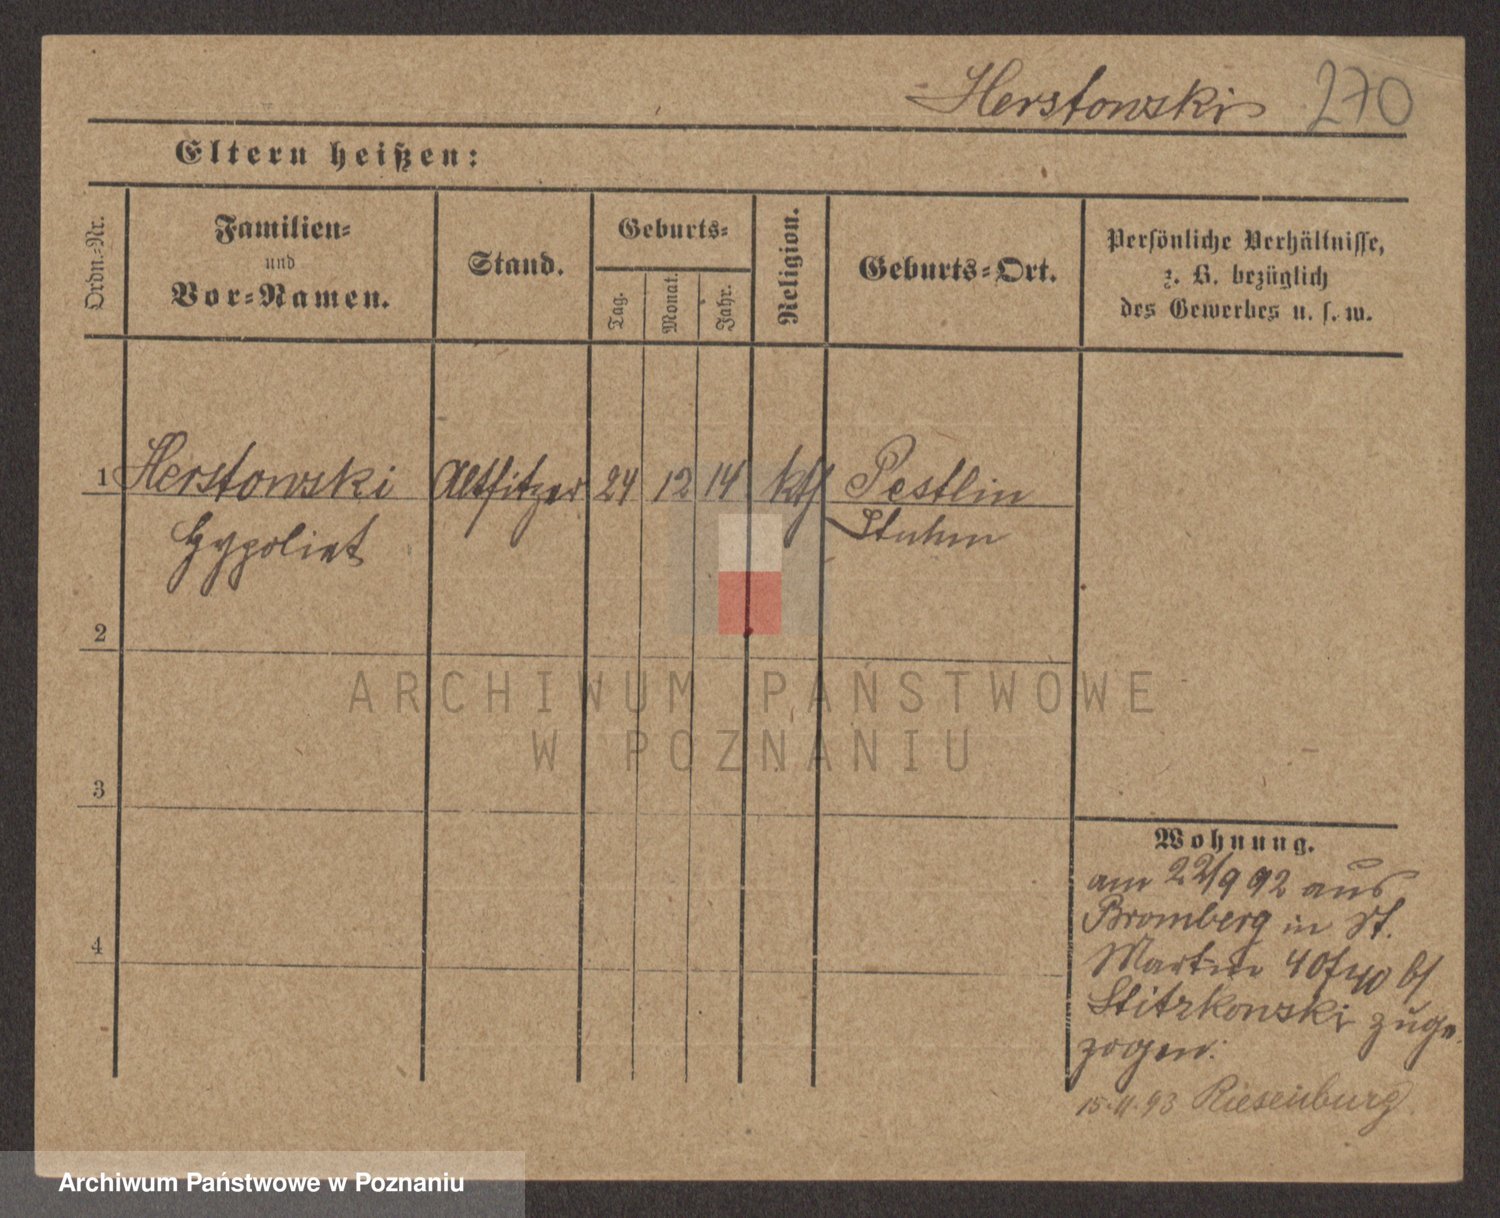 Herstowski 270
Eltern heißen:
Ordn.-Nr.
Familien-
und
Vor-Namen.
Stand.
Geburts-
Tag.
Monat.
Jahr.
Religion.
Geburts-Ort.
Persönliche Verhältnisse,
z. B. bezüglich
des Gewerbes u. s. w.
1 Herstowski Altsitzer 24 12 14 kth Pestlin
Hypolint Stuhm
2
3
4
Wohnung.
am 22/9 92 aus
Bromberg in St.
Martin 40 b/
Stitzkowski zuge-
zogen.
15.11.93 Riesenburg
ARCHIWUM PAŃSTWOWE
W POZNANIU
Archiwum Państwowe w Poznaniu